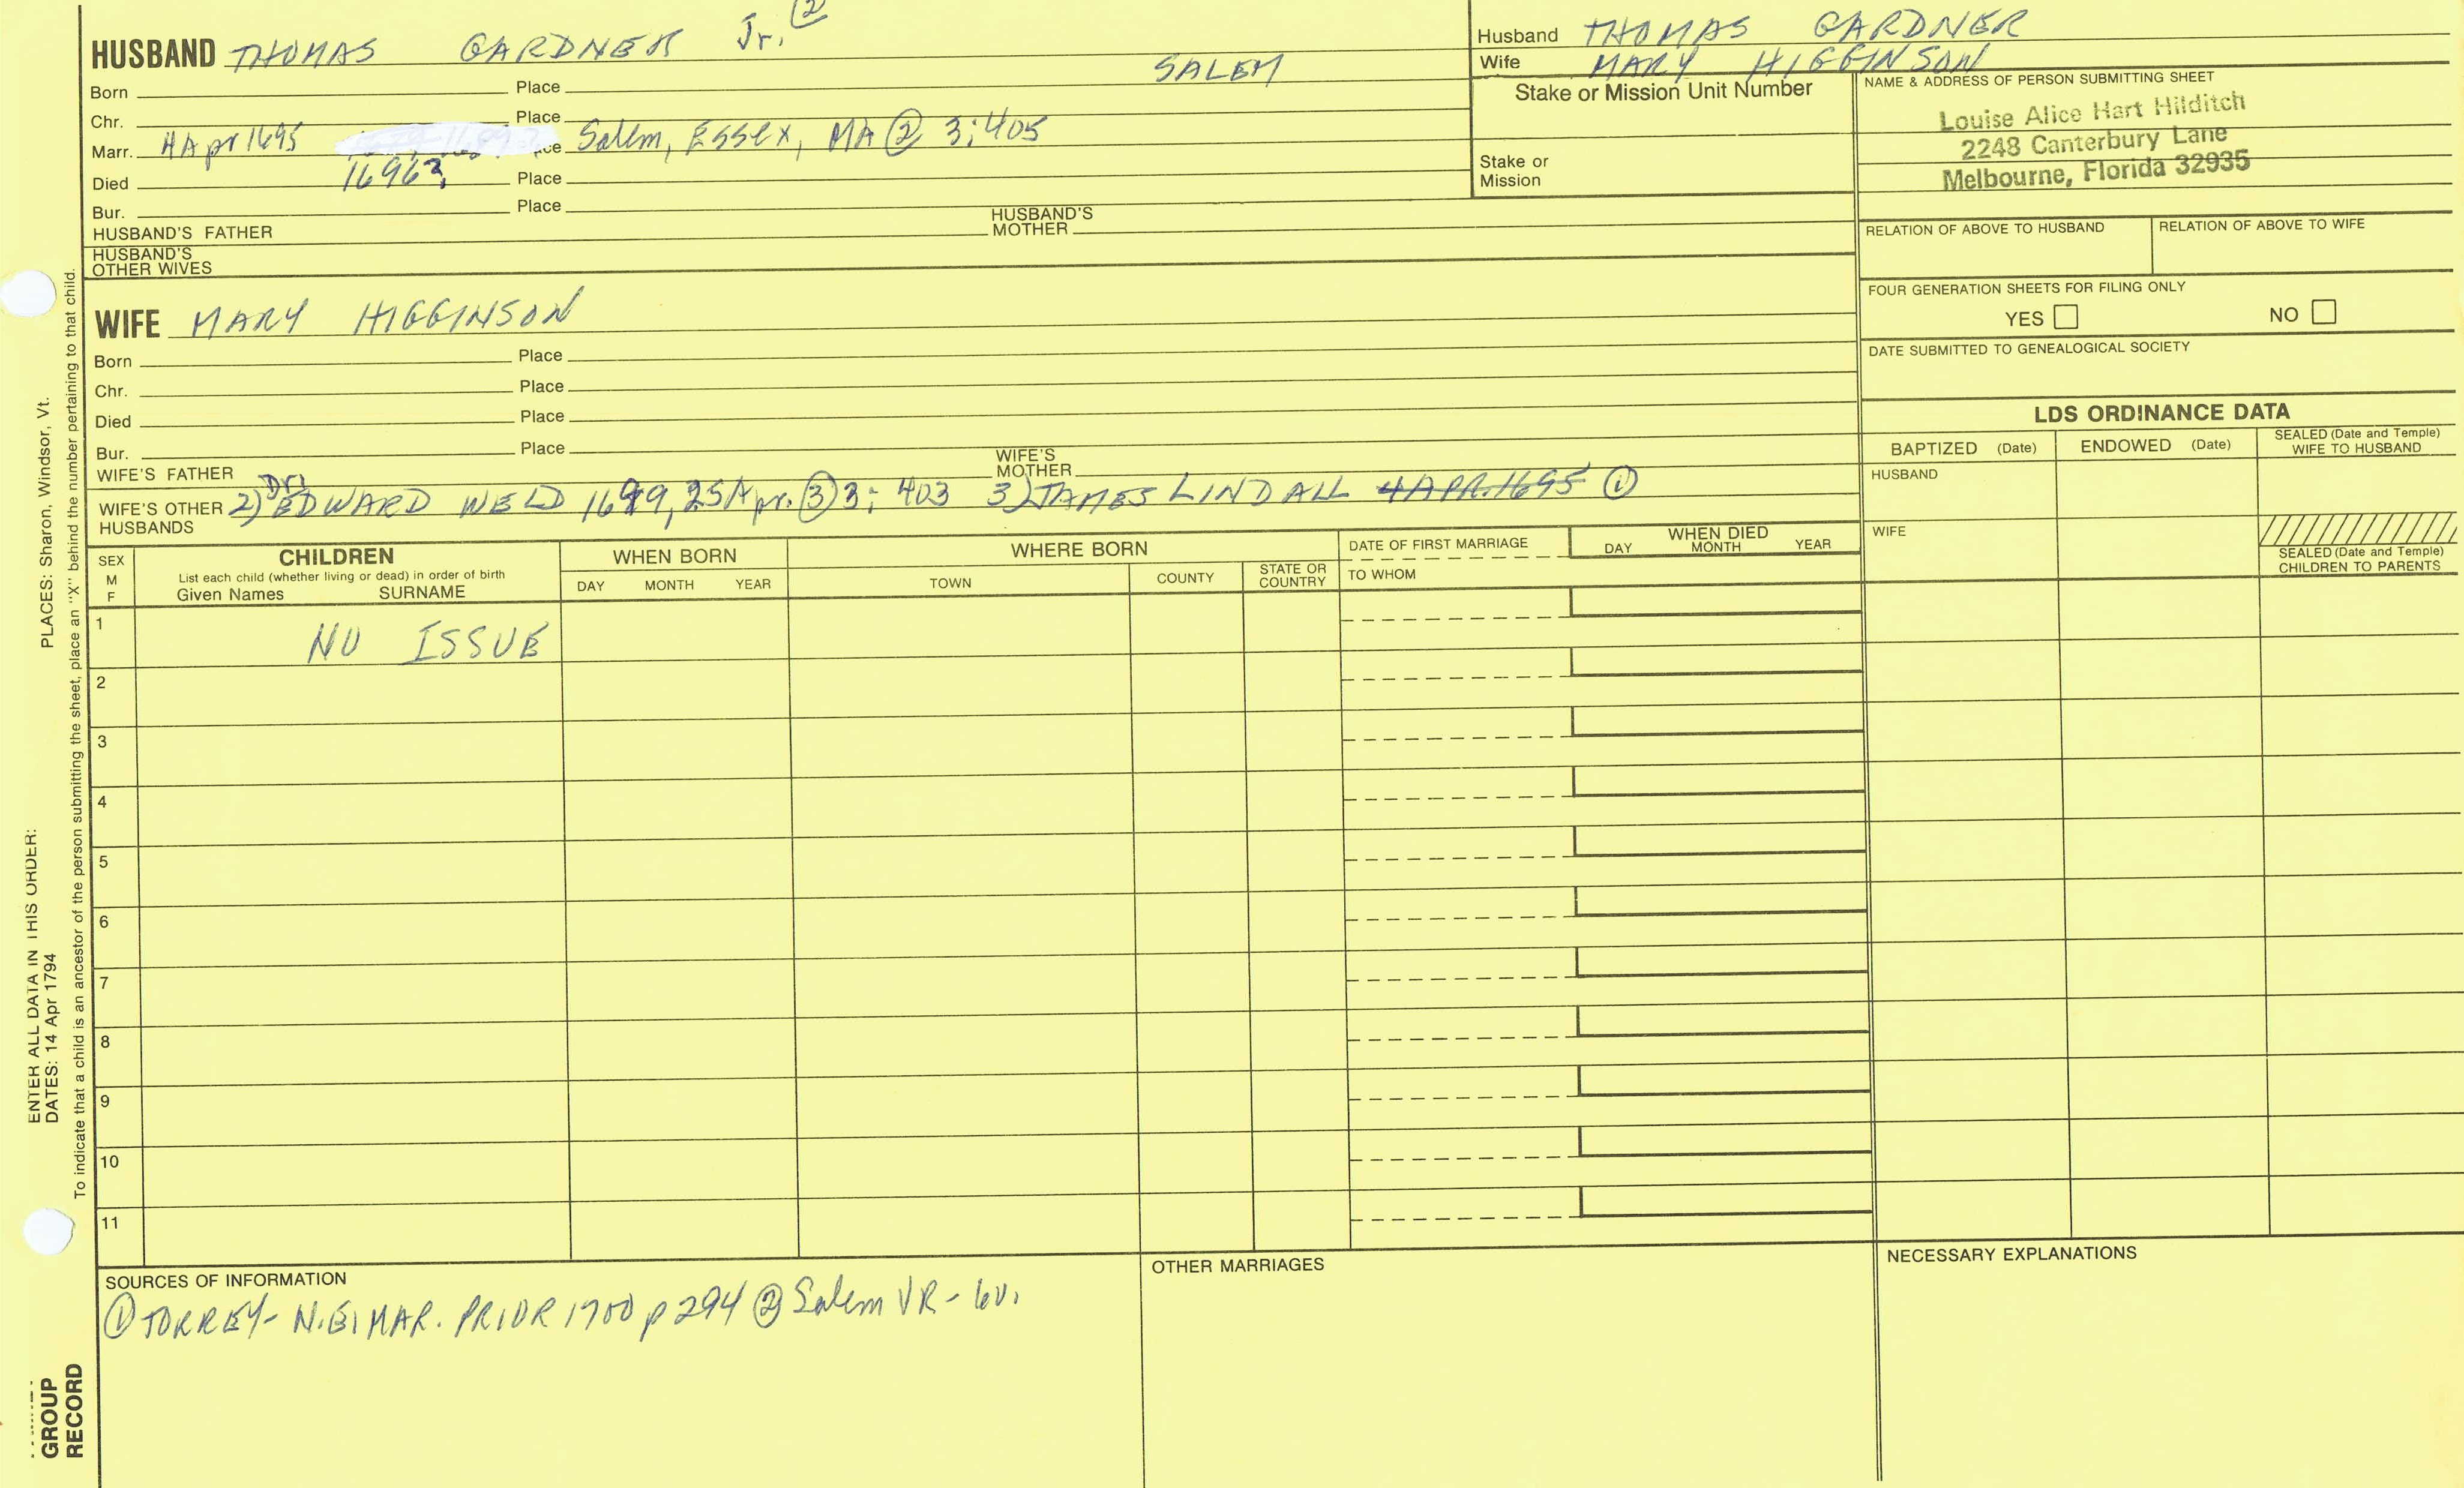 HUSBAND THOMAS GARDNER Jr. ②
SALEM
Born Place
Chr. Place
Marr. 4 Apr 1695 Salem, Essex, MA ② 3:405
Died 1696? Place
Bur. Place
HUSBAND'S FATHER HUSBAND'S MOTHER
HUSBAND'S OTHER WIVES
Husband THOMAS GARDNER
Wife MARY HIGGINSON
Stake or Mission Unit Number
Stake or Mission
NAME & ADDRESS OF PERSON SUBMITTING SHEET
Louise Alice Hart Hilditch
2248 Canterbury Lane
Melbourne, Florida 32935
RELATION OF ABOVE TO HUSBAND RELATION OF ABOVE TO WIFE
FOUR GENERATION SHEETS FOR FILING ONLY
YES NO
DATE SUBMITTED TO GENEALOGICAL SOCIETY
WIFE MARY HIGGINSON
Born Place
Chr. Place
Died Place
Bur. Place
WIFE'S FATHER WIFE'S MOTHER
WIFE'S OTHER HUSBANDS 2) Dr. EDWARD WELD 1699, 25 Apr. ③ 3: 403 3) JAMES LINDALL 4 APR. 1695 ①
LDS ORDINANCE DATA
BAPTIZED (Date) ENDOWED (Date) SEALED (Date and Temple) WIFE TO HUSBAND
HUSBAND
WIFE
SEALED (Date and Temple) CHILDREN TO PARENTS
SEX M F
CHILDREN
List each child (whether living or dead) in order of birth
Given Names SURNAME
WHEN BORN
DAY MONTH YEAR
WHERE BORN
TOWN COUNTY STATE OR COUNTRY
DATE OF FIRST MARRIAGE
TO WHOM
WHEN DIED
DAY MONTH YEAR
1 NO ISSUE
2
3
4
5
6
7
8
9
10
11
SOURCES OF INFORMATION
① TORREY- N.E. MAR. PRIOR 1700 p 294 ② Salem VR - 6v.
OTHER MARRIAGES
NECESSARY EXPLANATIONS
ENTER ALL DATA IN THIS ORDER:
DATES: 14 Apr 1794 PLACES: Sharon, Windsor, Vt.
To indicate that a child is an ancestor of the person submitting the sheet, place an "X" behind the number pertaining to that child.
GROUP
RECORD